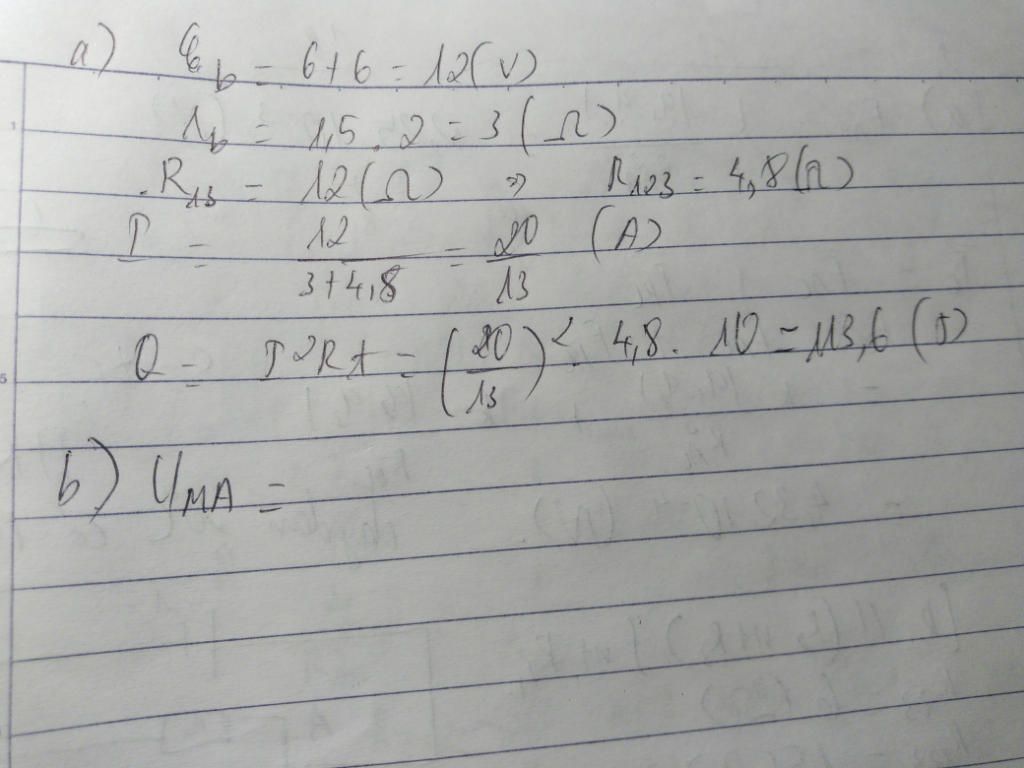 a) ℰb = 6+6 = 12(V)
rb = 1,5 . 2 = 3 (Ω)
R13 = 12(Ω) => R123 = 4,8(Ω)
I = 12/(3+4,8) = 20/13 (A)
Q = I²Rt = (20/13)² . 4,8 . 10 = 113,6 (J)
b) UMA =
1
5